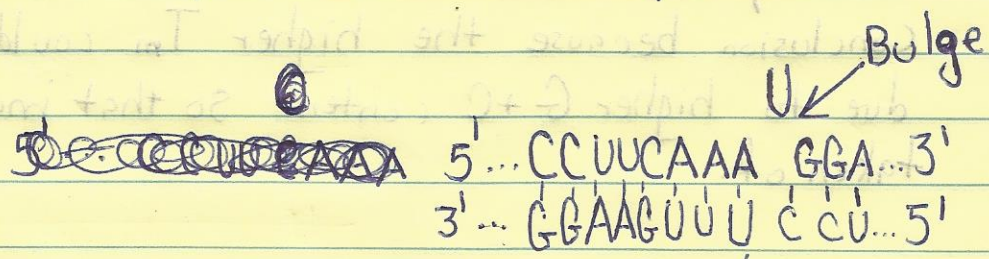 U Bulge
5' ... CCUUCAAA GGA... 3'
3' ... GGAAGUUU CCU... 5'